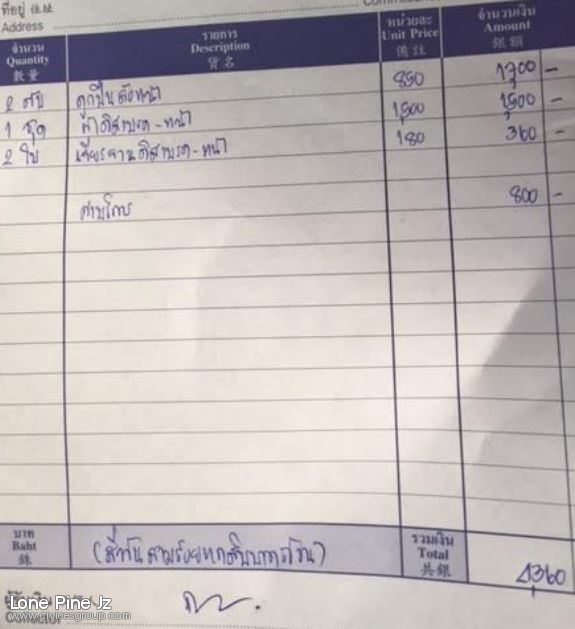 ที่อยู่ 住址
Address
จำนวน รายการ หน่วยละ จำนวนเงิน
Quantity Description Unit Price Amount
數量 貨名 備註 銀額
2 ตลับ ลูกปืนล้อหน้า 850 1700 -
1 ชุด ผ้าดิสเบรค-หน้า 1,500 1,500 -
2 ใบ เจียรจานดิสเบรค-หน้า 180 360 -
800 -
บาท (สี่พันสามร้อยหกสิบบาทถ้วน) รวมเงิน
Baht Total
銖 共銀 4,360
Lone Pine Jz
www.civicesgroup.com
Collector